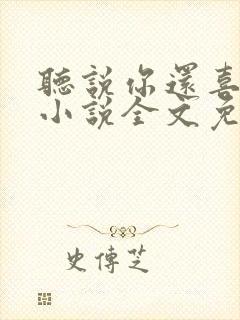 聽說你還喜
小說全文免
史傳芝